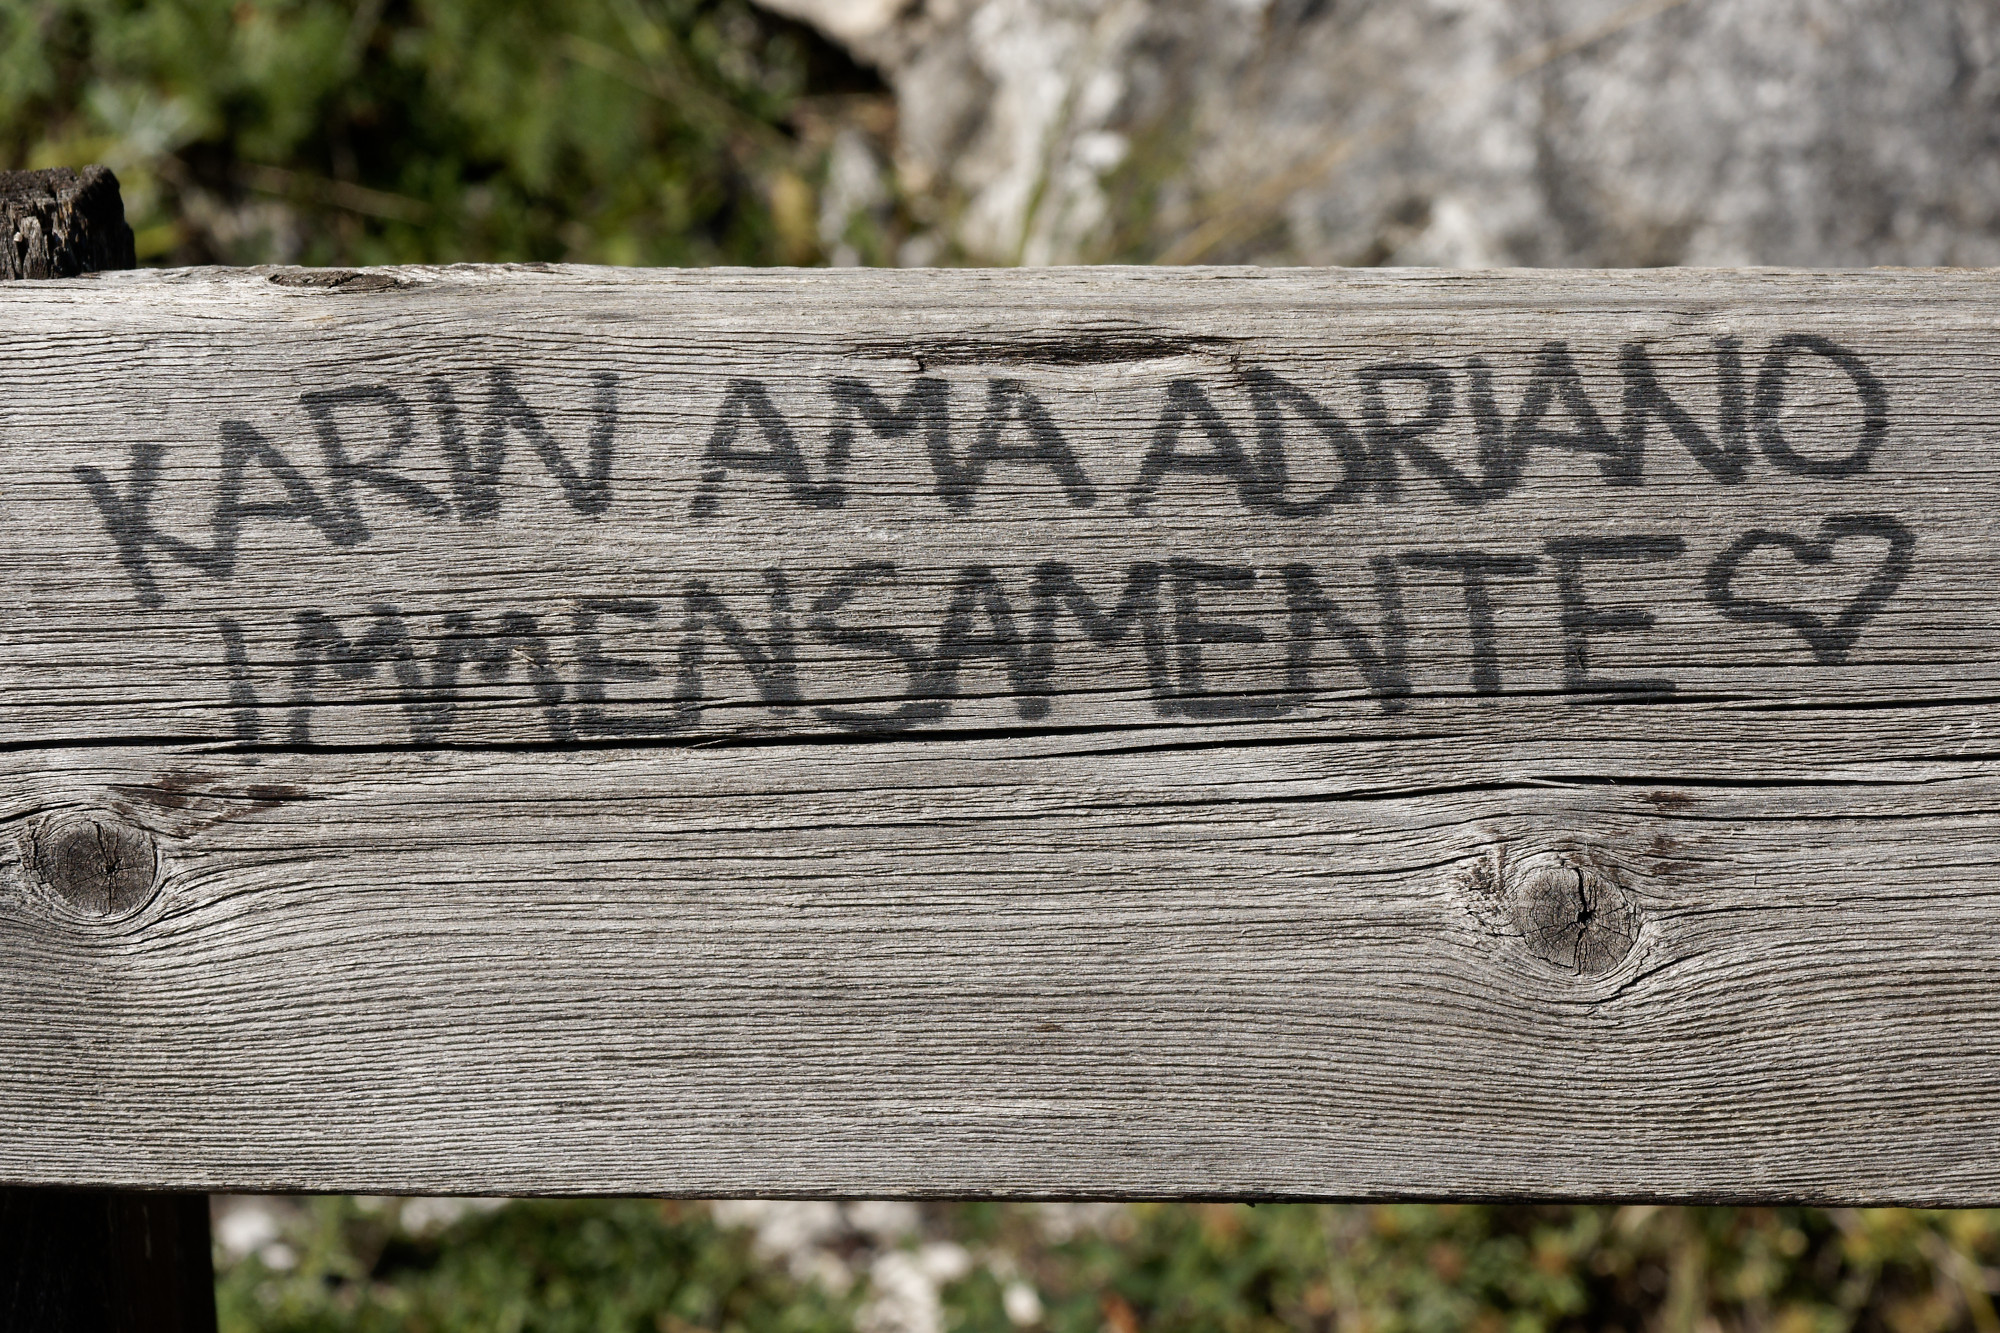 KARIN AMA ADRIANO
IMMENSAMENTE ♡